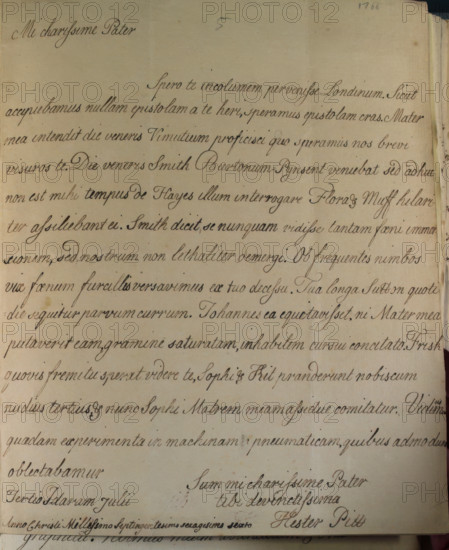 1766
5
Mi charissime Pater
Spero te incolumem pervenisse Londinum. Sicut
accipiebamus nullam epistolam a te heri, speramus epistolam cras. Mater
mea intendit die veneris Vimutium proficisci quo speramus nos brevi
visuros te. Die veneris Smith Burtonum Pynsent veniebat sed adhuc
non est mihi tempus de Hayes illum interrogare Flora & Muff hilari
ter assiliebant ei. Smith dicit, se nunquam vidisse tantam fæni
sionem, sed nostrum non lethaliter demergi. Ob frequentes nimbos
vix fænum furcillis versavimus ex tuo decessu. Tua longa Sutton quoti
die sequitur parvum currum. Iohannes ea equitavisset, ni Mater mea
putaverit eam, gramine saturatam, inhabilem cursu concitato. Frisk
quovis fremitu sperat videre te, Sophi & Kil pranderunt nobiscum
nudius tertius, & nunc Sophi Matrem meam assidue comitatur. Vidimus
quædam experimenta in machinam pneumaticam, quibus admodum
oblectabamur
Sum mi charissime Pater
Tertio Idarum Julii
tibi devinctissima
Anno Christi Millesimo Septingentesimo sexagesimo sexto
Hester Pitt
PHOTO 12